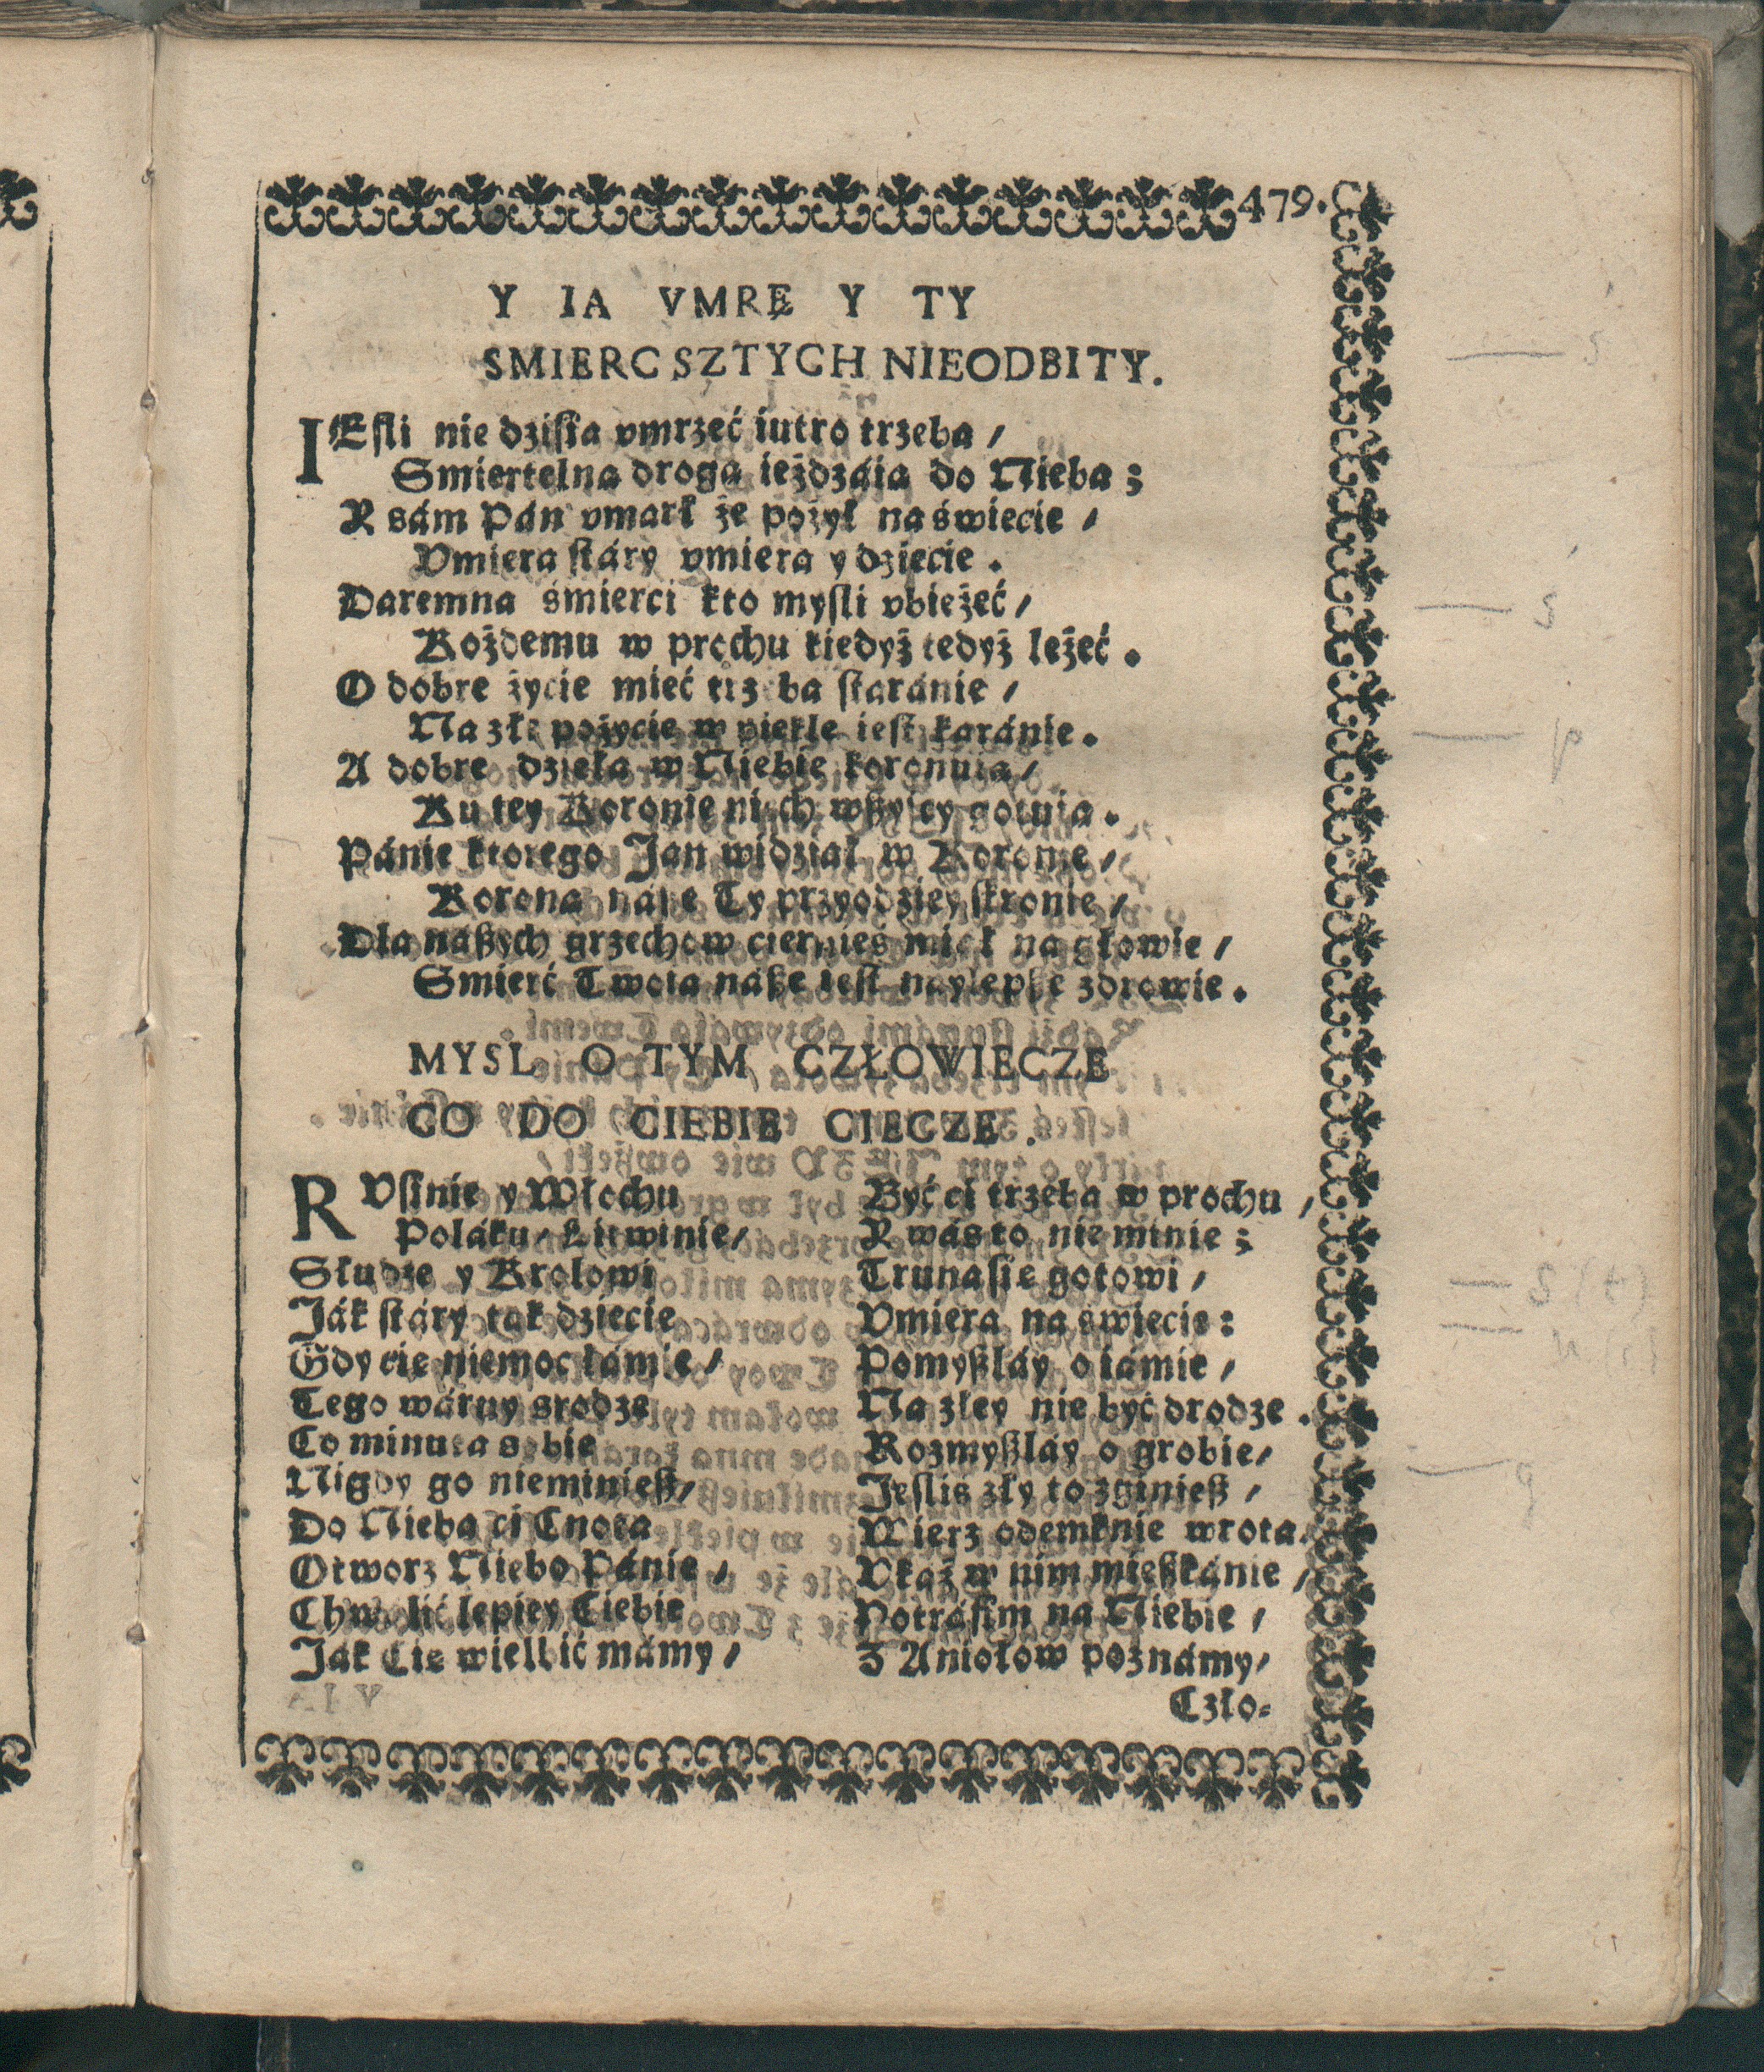 479.
Y IA VMRĘ Y TY
SMIERC SZTYCH NIEODBITY.
IEsli nie dzisia vmrzeć iutro trzeba /
Smiertelna droga ieżdzáia do Nieba ;
Y sám Pán vmarł że pożył na świecie /
Vmiera stáry vmiera y dziecie .
Daremna śmierci kto mysli vbieżeć /
Kożdemu w prochu kiedyż tedyż leżeć .
O dobre życie mieć trzeba staránie /
Na złe pożycie w piekle iest karánie .
A dobre dzieła w Niebie koronuia /
Ku tey Koronie niech wszyscy gotuia .
Pánie ktorego Jan widział w Koronie /
Korona násze Ty przyodziey skronie /
Dla naszych grzechow ciernieś miał na głowie /
Smierć Twoia násze iest naylepsze zdrowie .
MYSL O TYM CZŁOWIECZE
CO DO CIEBIE CIECZE .
RVsinie y Włochu Być ci trzeba w prochu ,
Poláku / Litwinie / Y wás to nie minie ;
Słudze y Krolowi Truna sie gotowi /
Ják stáry tak dziecie Vmiera na swiecie :
Gdy cie niemoc łámie / Pomyszláy o iámie /
Tego wáruy srodze Na zley nie być drodze .
Co minuta sobie Rozmyszláy o grobie /
Nigdy go nieminiesz / Jeslis zły to zginiesz /
Do Nieba ci Cnota Wierz odemknie wrota .
Otworz Niebo Pánie / Vkaż w nim mieszkánie /
Chwalić lepiey Ciebie Potráfim na Niebie /
Jak Cie wielbić mámy / Z Aniołow poznámy /
Czło=